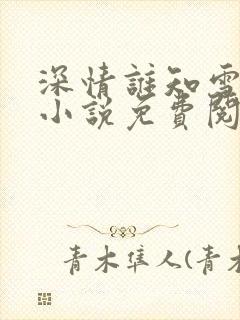 深情誰知雪
小說免費閱
青木隼人(青木